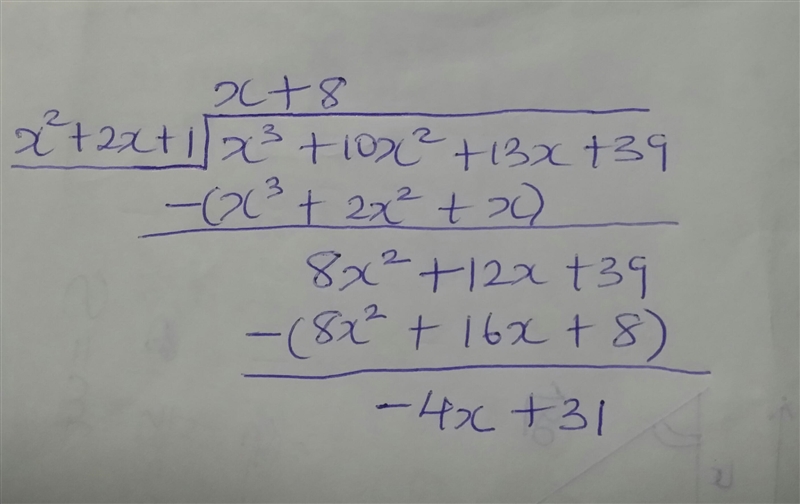 x + 8
x² + 2x + 1 x³ + 10x² + 13x + 39
-(x³ + 2x² + x)
8x² + 12x + 39
-(8x² + 16x + 8)
-4x + 31